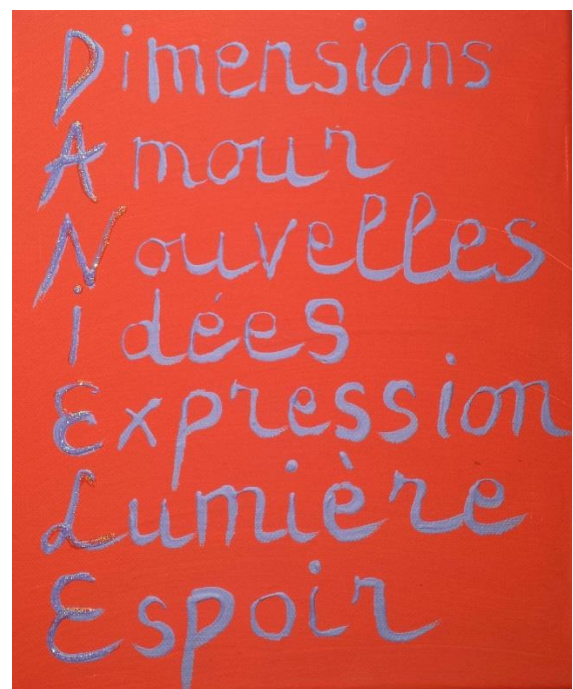 Dimensions
Amour
Nouvelles
idées
Expression
Lumière
Espoir